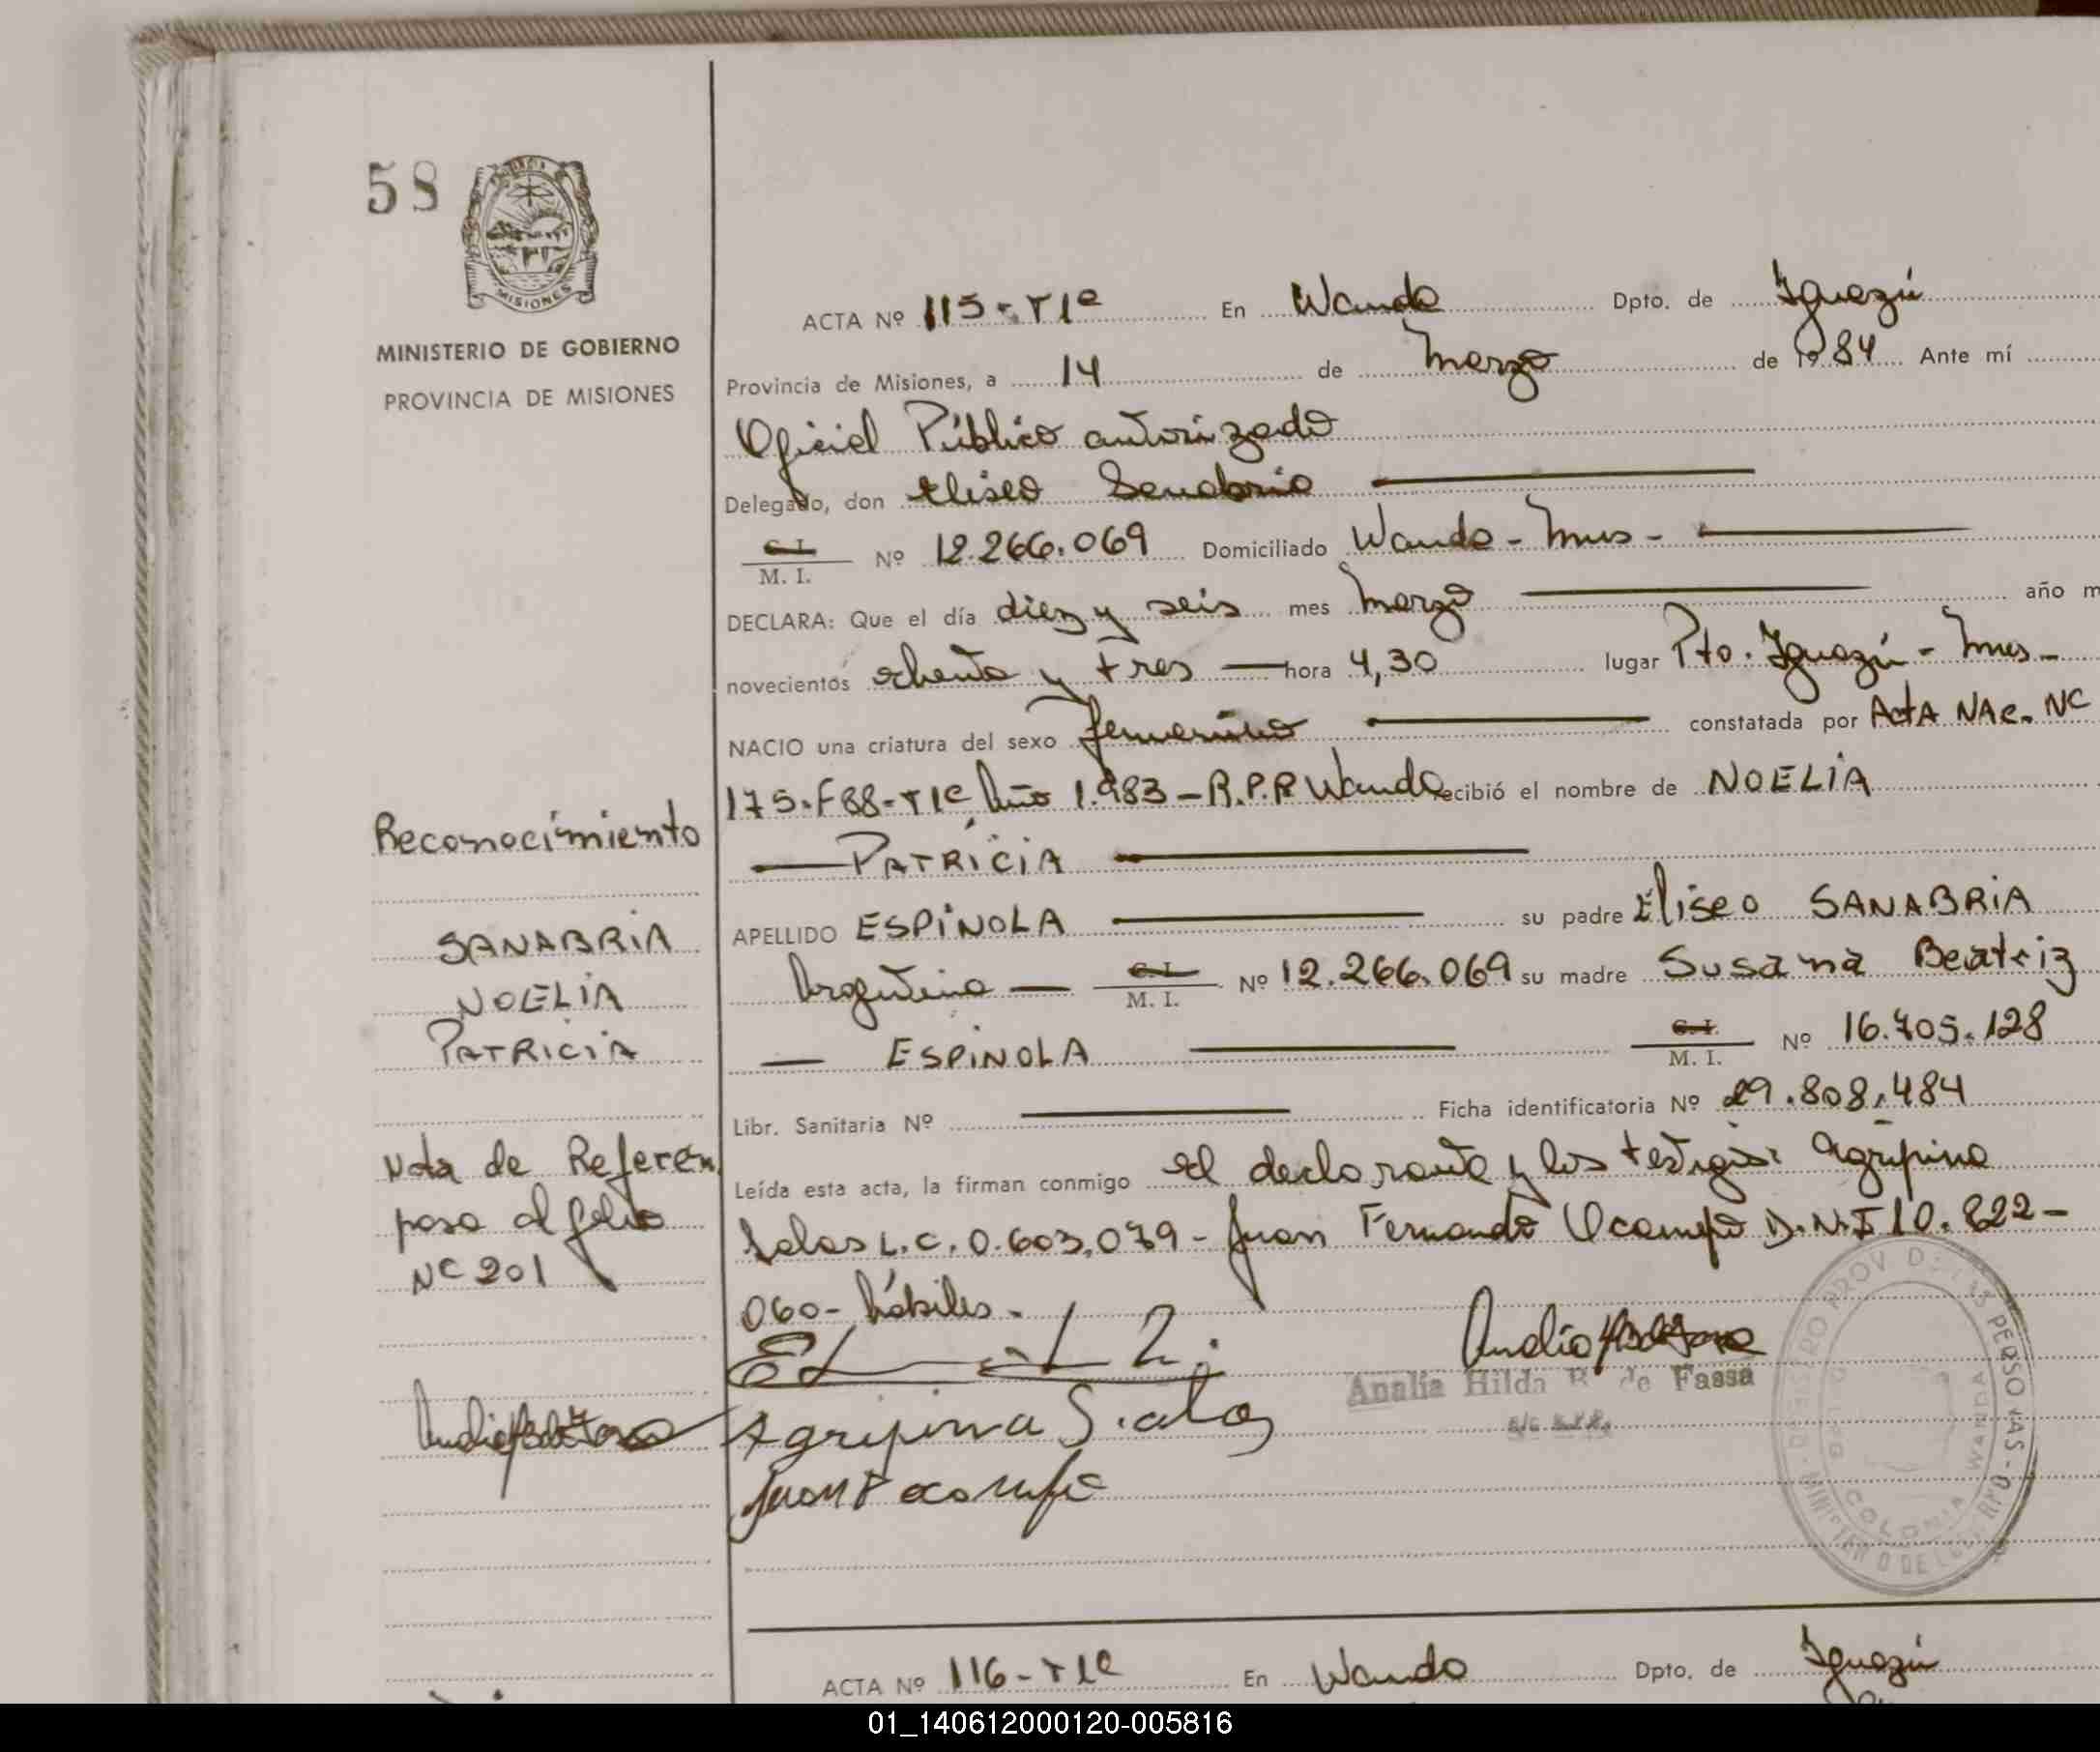 58
MISIONES
MINISTERIO DE GOBIERNO
PROVINCIA DE MISIONES
ACTA Nº 115-T1º En Wanda Dpto. de Iguazú
Provincia de Misiones, a 14 de Marzo de 1984 Ante mí
Oficial Público autorizado
Delegado, don Eliseo Sanabria
C. I. / M. I. Nº 12.266.069 Domiciliado Wanda - Mnes -
DECLARA: Que el día diez y seis mes Marzo año m
novecientos ochenta y tres hora 4,30 lugar Pto. Iguazú - Mnes -
NACIO una criatura del sexo femenino constatada por ActA NAc. Nº
175-F88-T1º Año 1.983 - R.P.P Wanda recibió el nombre de NOELIA
PATRICIA
APELLIDO ESPINOLA su padre Eliseo SANABRIA
Argentino C. I. / M. I. Nº 12.266.069 su madre Susana Beatriz
ESPINOLA C. I. / M. I. Nº 16.705.128
Libr. Sanitaria Nº Ficha identificatoria Nº 29.808.484
Leída esta acta, la firman conmigo el declarante y los testigos: Agripina
Salas L.C. 0.603,079 - Juan Fernando Ocampo D.N.I 10.822-
060- hábiles.
Reconocimiento
SANABRIA
NOELIA
PATRICIA
Nota de Referen
pasa al folio
Nº 201
Agripina Salas
Juan F Ocampo
Analía Hilda B. de Fassa
COLONIA WANDA
ACTA Nº 116-T1º En Wanda Dpto. de Iguazú
01_140612000120-005816